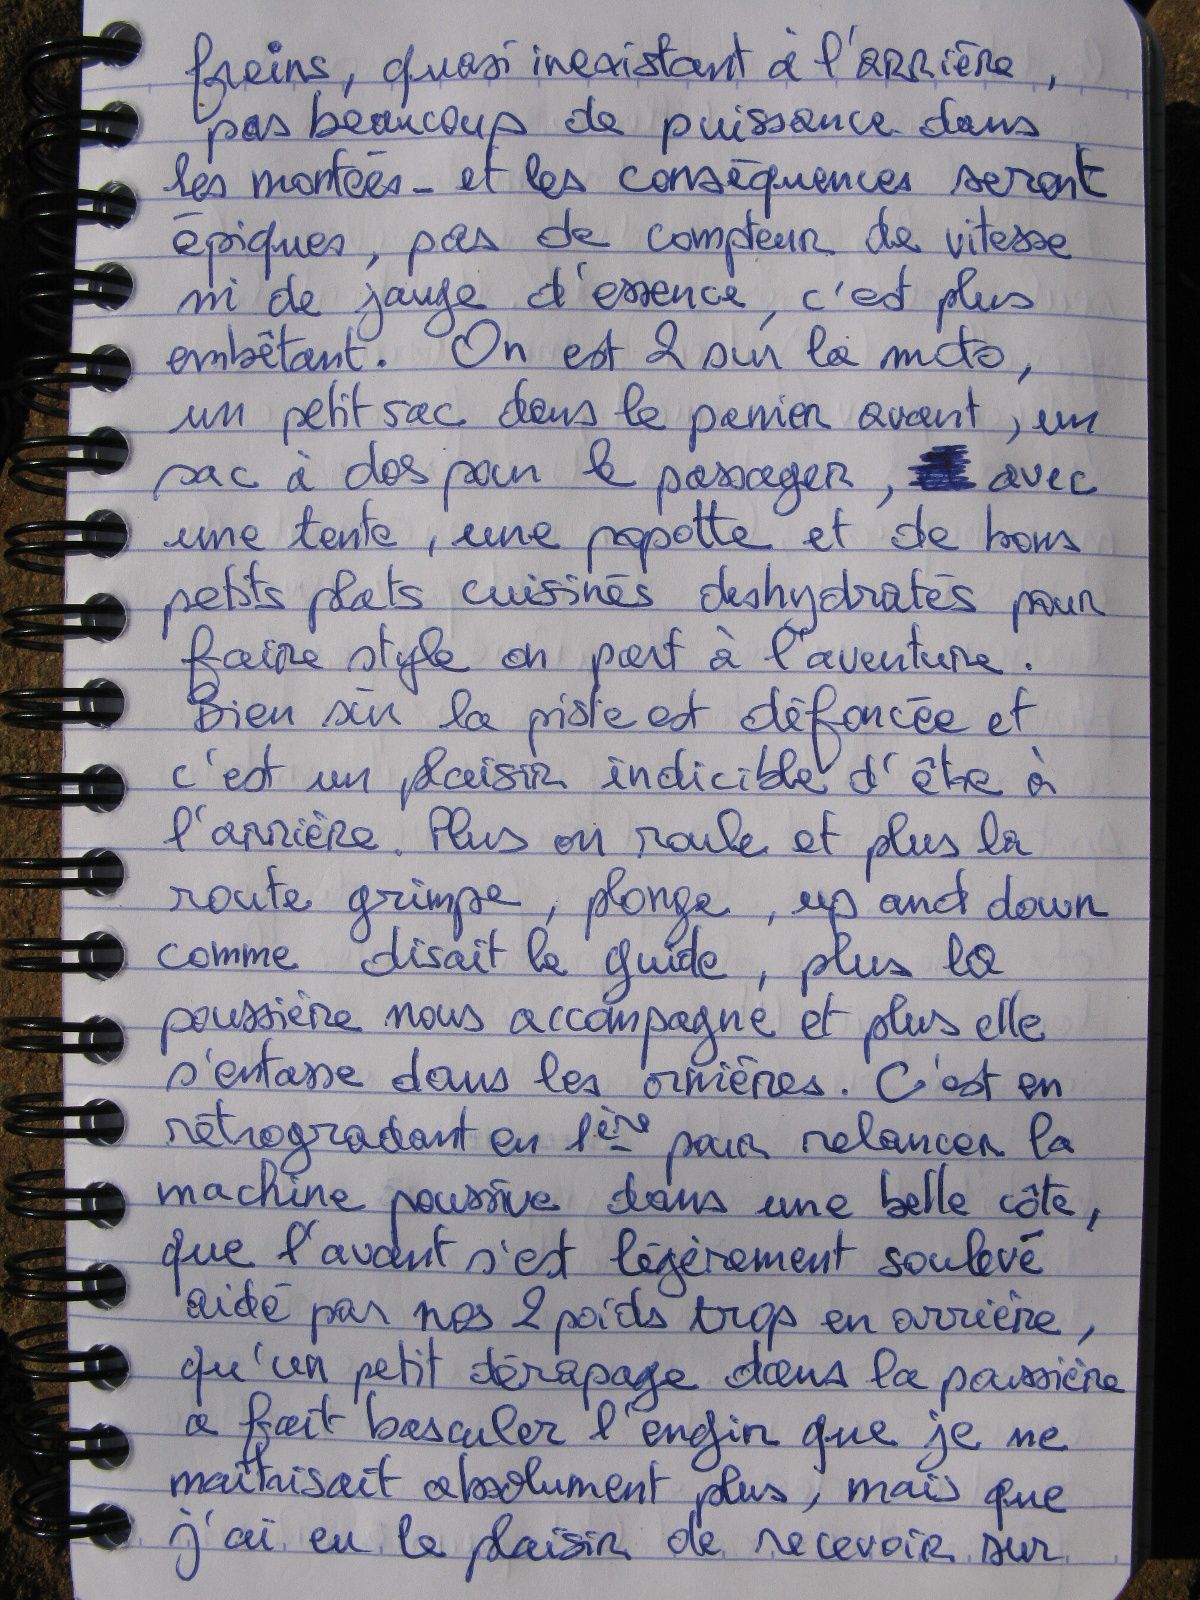 freins, quasi inexistant à l'arrière,
pas beaucoup de puissance dans
les montées - et les conséquences seront
épiques, pas de compteur de vitesse
ni de jauge d'essence, c'est plus
embêtant. On est 2 sur la moto,
un petit sac dans le panier avant, un
sac à dos pour le passager, avec
une tente, une popotte et de bons
petits plats cuisinés deshydratés pour
faire style on part à l'aventure.
Bien sûr la piste est défoncée et
c'est un plaisir indicible d'être à
l'arrière. Plus on roule et plus la
route grimpe, plonge, up and down
comme disait le guide, plus la
poussière nous accompagne et plus elle
s'entasse dans les ornières. C'est en
rétrogradant en 1ère pour relancer la
machine poussive dans une belle côte,
que l'avant s'est légèrement soulevé
aidé par nos 2 poids trop en arrière,
qu'un petit dérapage dans la poussière
a fait basculer l'engin que je ne
maitrisait absolument plus, mais que
j'ai eu le plaisir de recevoir sur